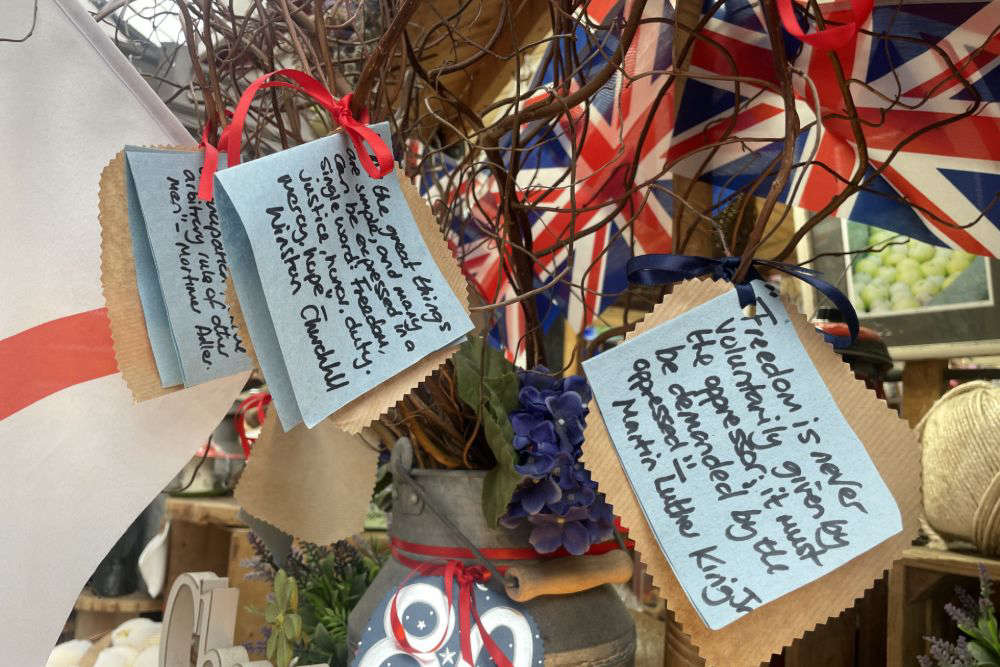 arbitrary rule of other
men" - Mortimer Adler.
the great things
are simple, and many
can be expressed in a
single word: freedom,
justice, honor, duty.
mercy, hope - 
Winston Churchill
"Freedom is never
voluntarily given by
the oppressor; it must
be demanded by the
oppressed" -
Martin Luther King Jr
80